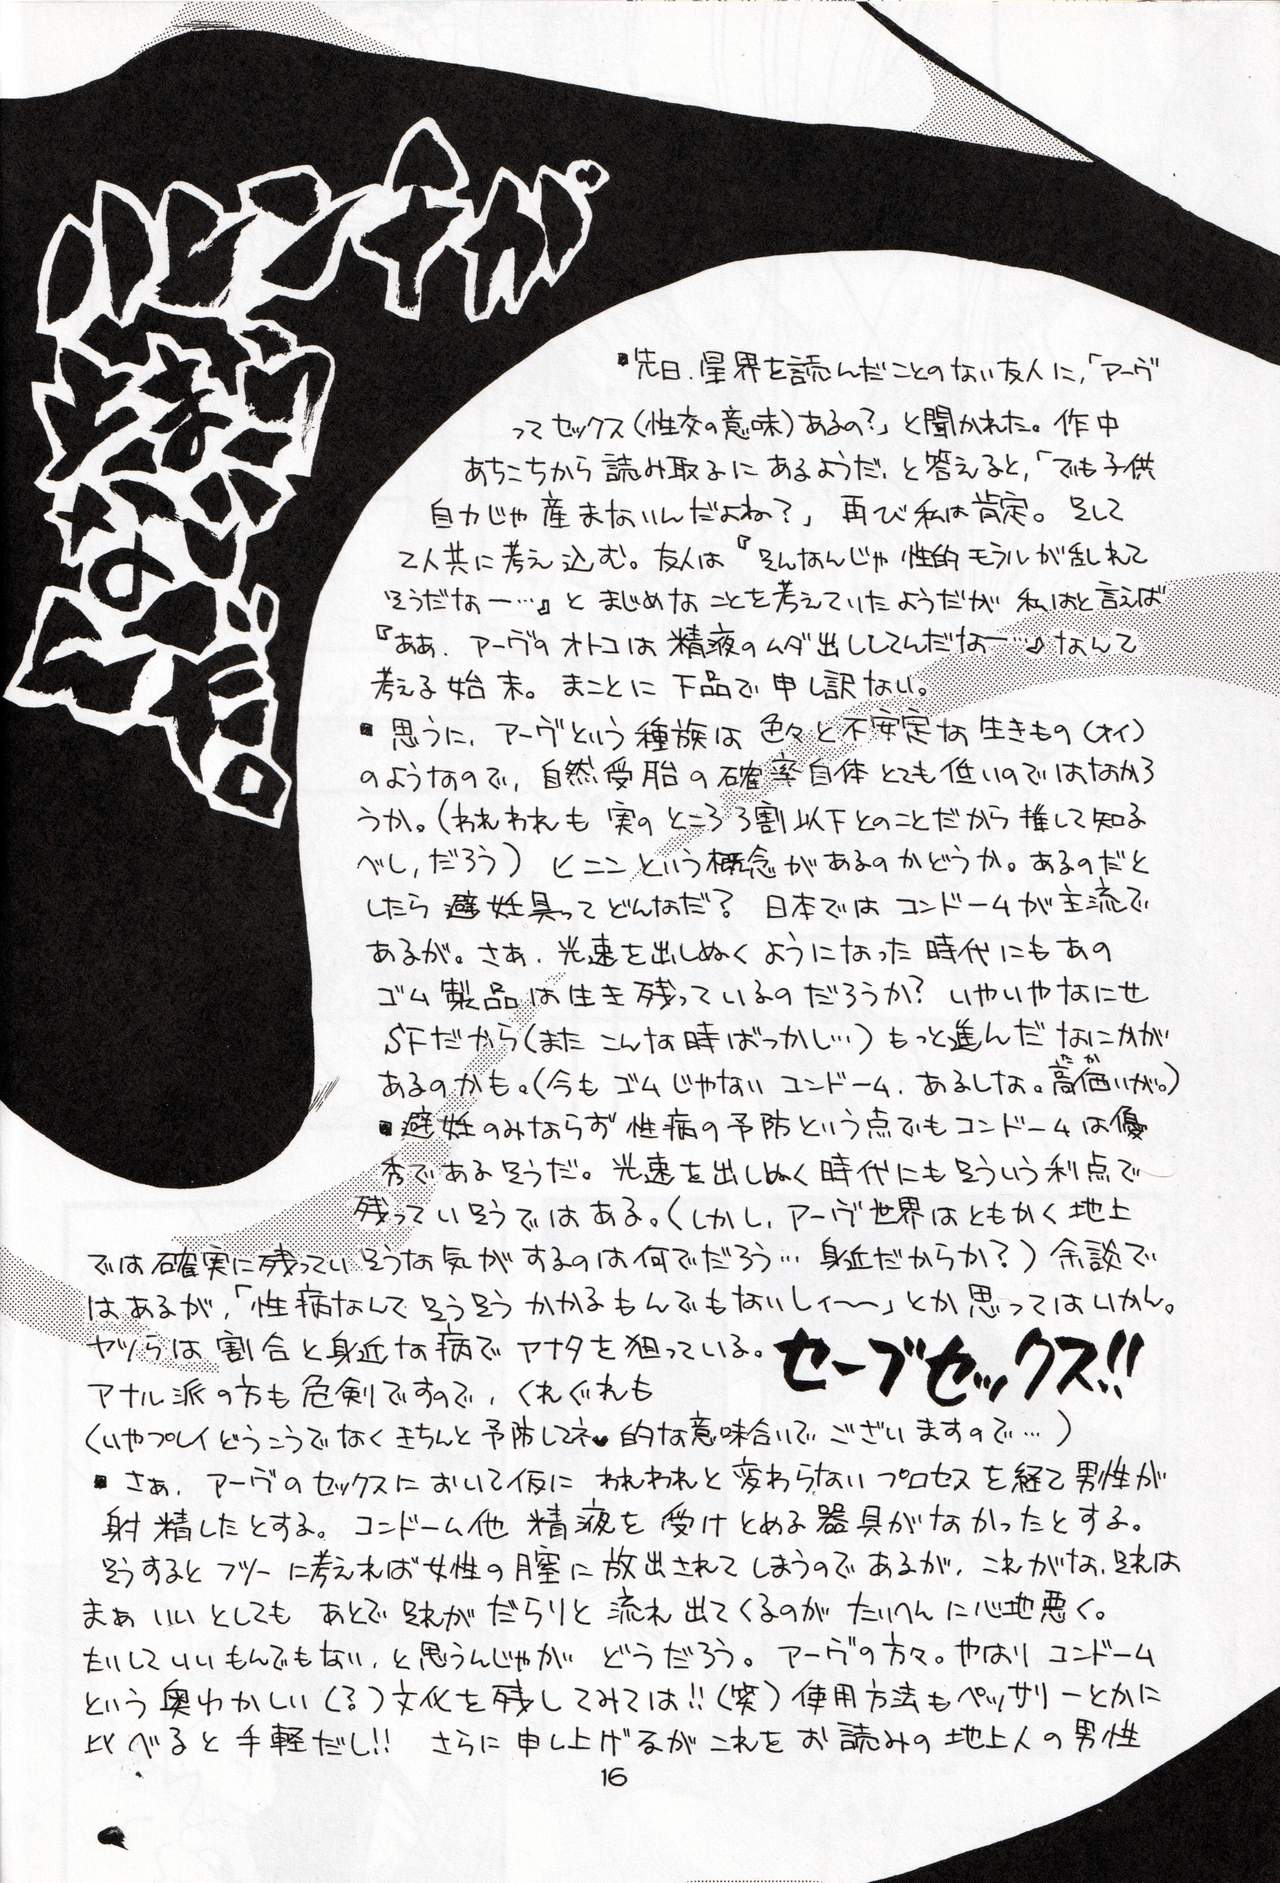 ハレンチが
止まらない
なのだ。
▪先日、星界を読んだことのない友人に、「アーヴ
ってセックス(性交の意味)あるの?」と聞かれた。作中
あちこちから読み取るにあるようだ、と答えると、「でも子供
自力じゃ産まないんだよね?」再び私は肯定。そして
2人共に考え込む。友人は『そんなんじゃ性的モラルが乱れて
そうだなー…』とまじめなことを考えていたようだが私はと言えば
『ああ、アーヴのオトコは精液のムダ出ししてんだなー…』なんて
考える始末。まことに下品で申し訳ない。
▪思うに、アーヴという種族は色々と不安定な生きもの(オイ)
のようなので、自然受胎の確率自体とても低いのではなかろ
うか。(われわれも実のところ3割以下とのことだから推して知る
べし、だろう)ヒニンという概念があるのかどうか。あるのだと
したら避妊具ってどんなだ?日本ではコンドームが主流で
あるが。さぁ、光速を出しぬくようになった時代にもあの
ゴム製品は生き残っているのだろうか?いやいやなにせ
SFだから(またこんな時ばっかし…)もっと進んだなにかが
あるのかも。(今もゴムじゃないコンドーム、あるしな。高価いが。)
▪避妊のみならず性病の予防という点でもコンドームは優
秀であるそうだ。光速を出しぬく時代にもそういう利点で
残っていそうではある。(しかし、アーヴ世界はともかく地上
では確実に残っていそうな気がするのは何でだろう…身近だからか?)余談で
はあるが、「性病なんてそうそうかかるもんでもないしィ〜〜」とか思ってはいかん。
ヤツらは割合と身近な病でアナタを狙っている。セーブセックス!!
アナル派の方も危剣ですので、くれぐれも
(いやプレイどうこうでなくきちんと予防してネ♥的な意味合いでございますので…)
▪さぁ、アーヴのセックスにおいて仮にわれわれと変わらないプロセスを経て男性が
射精したとする。コンドーム他精液を受けとめる器具がなかったとする。
そうするとフツーに考えれば女性の膣に放出されてしまうのであるが、これがな、それは
まぁいいとしてもあとでそれがだらりと流れ出てくるのがたいへんに心地悪く。
たいしていいもんでもない、と思うんじゃがどうだろう。アーヴの方々。やはりコンドーム
という奥ゆかしい(る)文化を残してみては!!(笑)使用方法もペッサリーとかに
比べると手軽だし!!さらに申し上げるがこれをお読みの地上人の男性
16